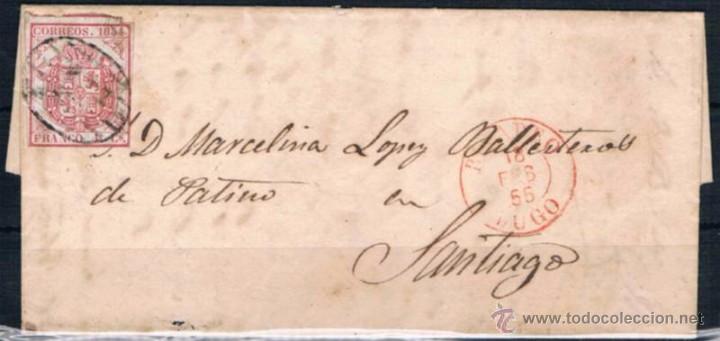 CORREOS. 1854
FRANCO. 4. Cs.
S.ª D Marcelina Lopez Ballesteros
de Patiño en
Santiago
18
FEB
55
LUGO
www.todocoleccion.net